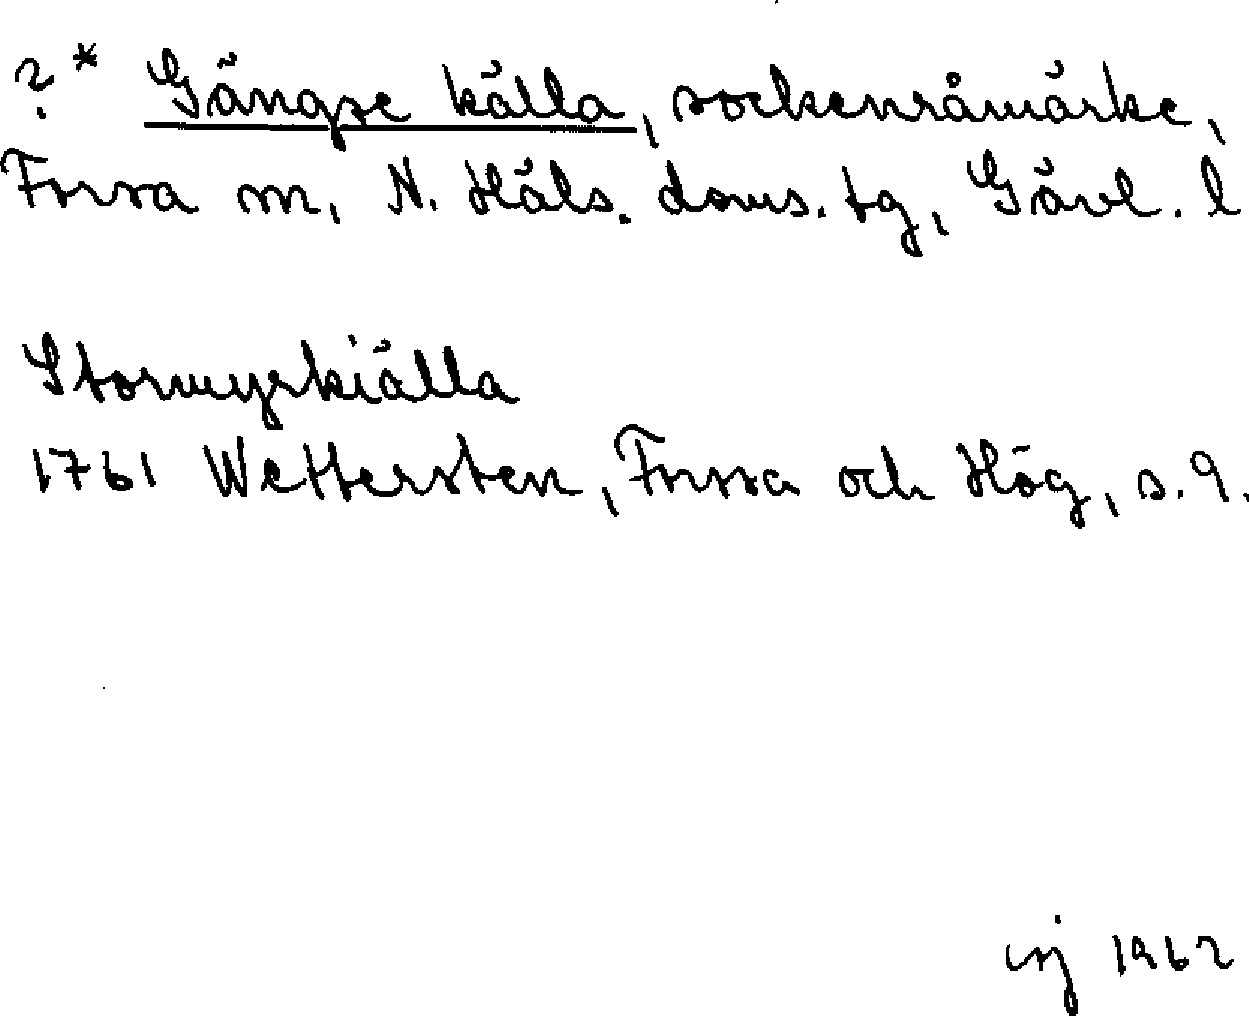 ? * Gängse källa, sockenråmärke,
Forsa sn, N. Häls. doms. tg, Gävl. l
Stormyrkiälla
1761 Wettersten, Forssa och Hög, s. 9.
1962